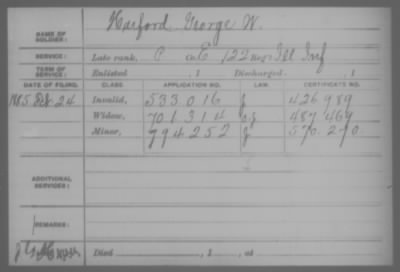 NAME OF SOLDIER: Harford George W.
SERVICE: Late rank, P Co. E, 122 Reg't Ill Inf
TERM OF SERVICE: Enlisted , 1 Discharged , 1
DATE OF FILING. CLASS. APPLICATION NO. LAW. CERTIFICATE NO.
1885 24 Invalid, 533 016 426 989
Widow, 701 314 487 469
Minor, 794 252 570.270
ADDITIONAL SERVICES:
REMARKS:
Died , 1 , at